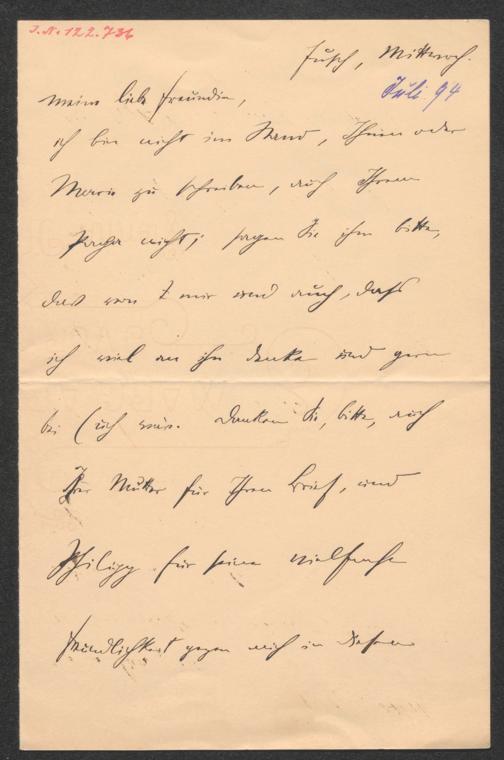 J.N. 122.736
Fusch, Mittwoch.
Juli 94
meine liebe Freundin,
ich bin nicht im Stand, Ihnen oder
Marie zu schreiben, auch Ihrem
Papa nicht; sagen Sie ihm bitte,
das von mir und auch, dass
ich viel an ihn denke und gern
bei ihm wär. Danken Sie, bitte, auch
Ihrer Mutter für Ihren Brief, und
Philipp für seine vielfache
Freundlichkeit gegen mich in